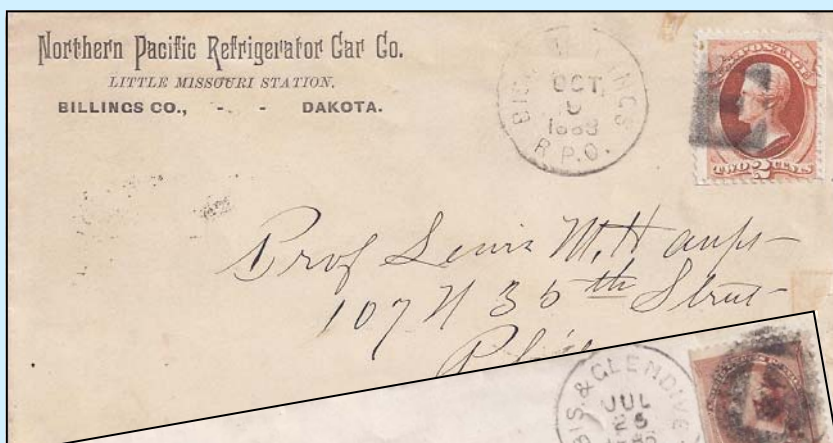 Northern Pacific Refrigerator Car Co.
LITTLE MISSOURI STATION.
BILLINGS CO., - - DAKOTA.
BIS. & BILLINGS
OCT
1883
R.P.O.
U.S. POSTAGE
TWO 2 CENTS
Prof Lewis M. Haupt
107 N 35th Street
BIS. & GLENDIVE
JUL